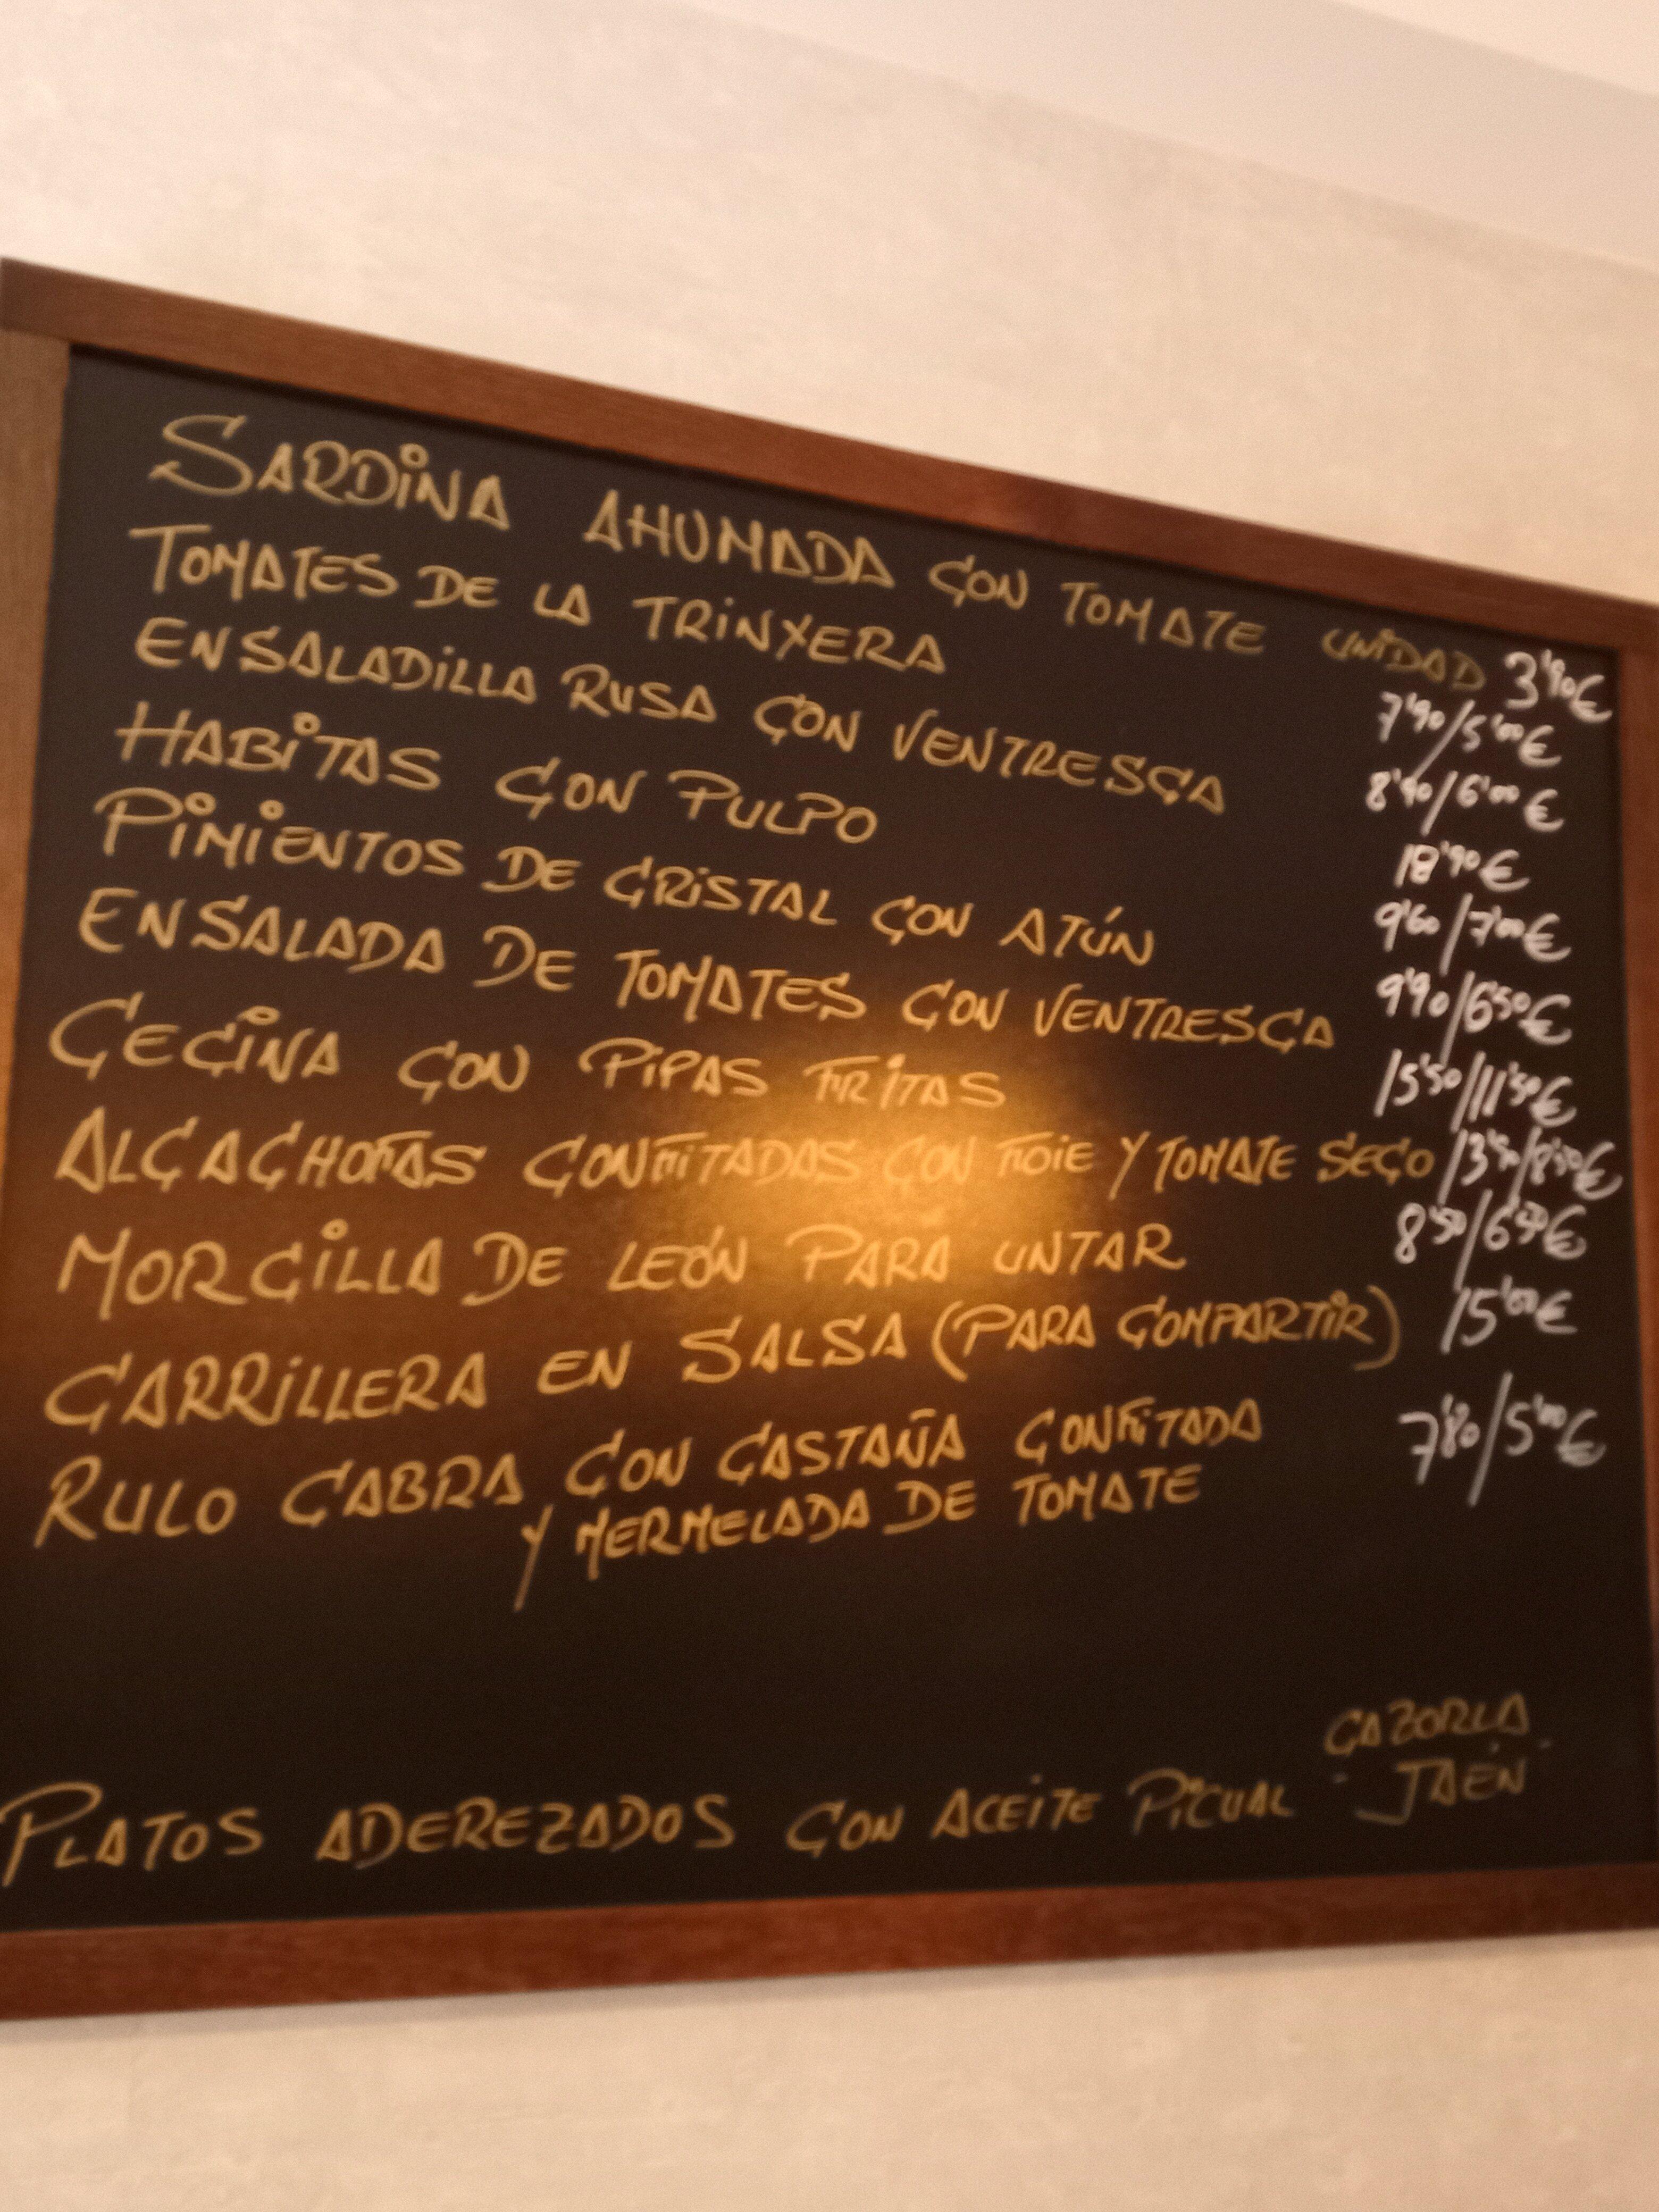 SARDINA AHUMADA CON TOMATE UNIDAD 3'90€
TOMATES DE LA TRINXERA 7'90/5'00€
ENSALADILLA RUSA CON VENTRESCA 8'90/6'00€
HABITAS CON PULPO 18'90€
PIMIENTOS DE CRISTAL CON ATÚN 9'60/7'00€
ENSALADA DE TOMATES CON VENTRESCA 9'90/6'50€
CECINA CON PIPAS FRITAS 15'50/11'50€
ALCACHOFAS CONFITADAS CON FOIE Y TOMATE SECO 13'50/8'50€
MORCILLA DE LEÓN PARA UNTAR 8'50/6'50€
CARRILLERA EN SALSA (PARA COMPARTIR) 15'00€
RULO CABRA CON CASTAÑA CONFITADA 7'80/5'00€
Y MERMELADA DE TOMATE
PLATOS ADEREZADOS CON ACEITE PICUAL
CAZORLA
- JAÉN -